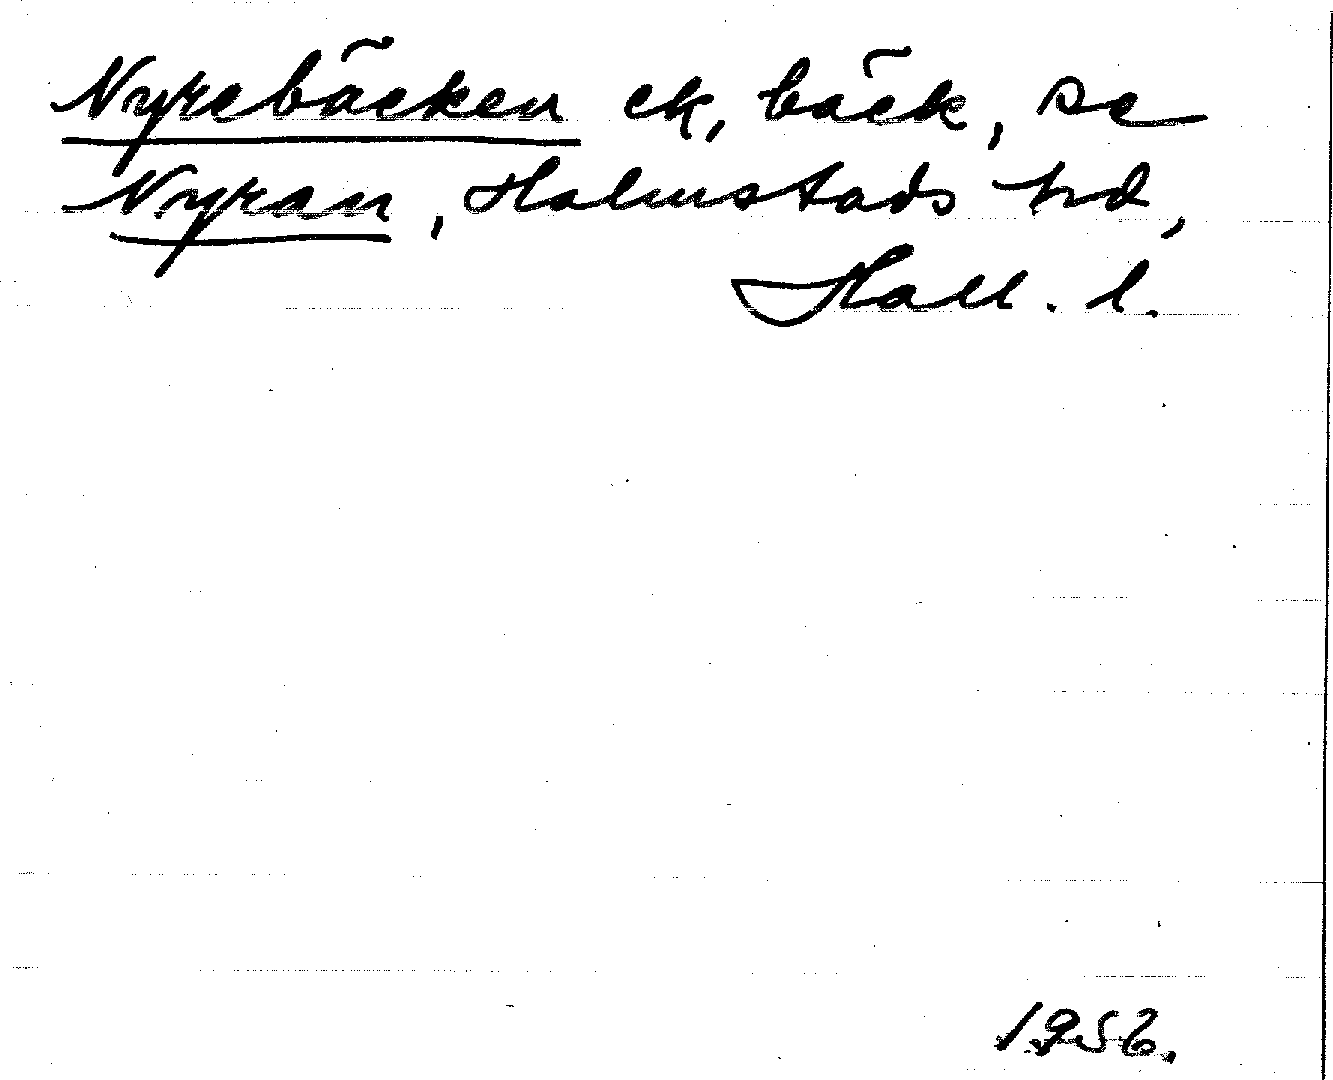 Nyrebäcken ek, bäck, se
Nyran, Halmstads hd,
Hall. l.
1956.